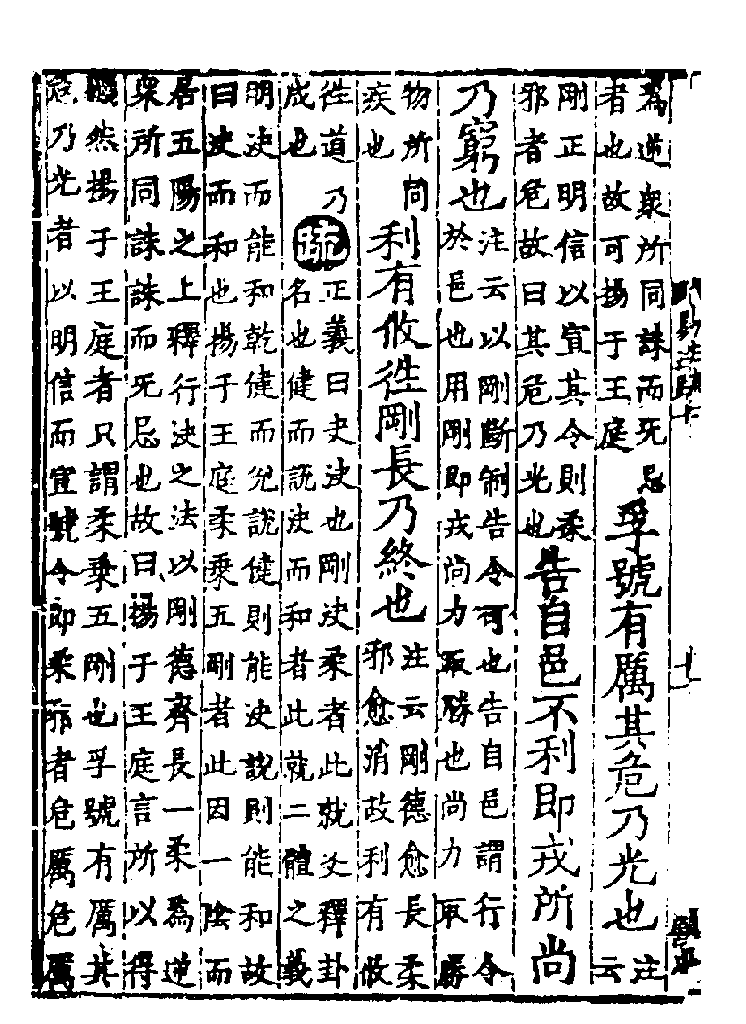 爲逆衆所同誅而死忌
者也故可揚于王庭
孚號有厲其危乃光也
注
云
剛正明信以宣其令則柔
邪者危故曰其危乃光也
告自邑不利即戎所尚
乃窮也
注云以剛斷制告令可也告自邑謂行令
於邑也用剛即戎尚力取勝也尚力取勝
物所同
疾也
利有攸往剛長乃終也
注云剛德愈長柔
邪愈消故利有攸
往道乃
成也
疏
正義曰夬決也剛決柔者此就爻釋卦
名也健而說決而和者此就二體之義
明決而能和乾健而兌說健則能決說則能和故
曰決而和也揚于王庭柔乘五剛者此因一陰而
居五陽之上釋行決之法以剛德齊長一柔爲逆
衆所同誅誅而死忌也故曰揚于王庭言所以得
顯然揚于王庭者只謂柔乘五剛也孚號有厲其
危乃光者以明信而宣號令即柔邪者危厲危厲